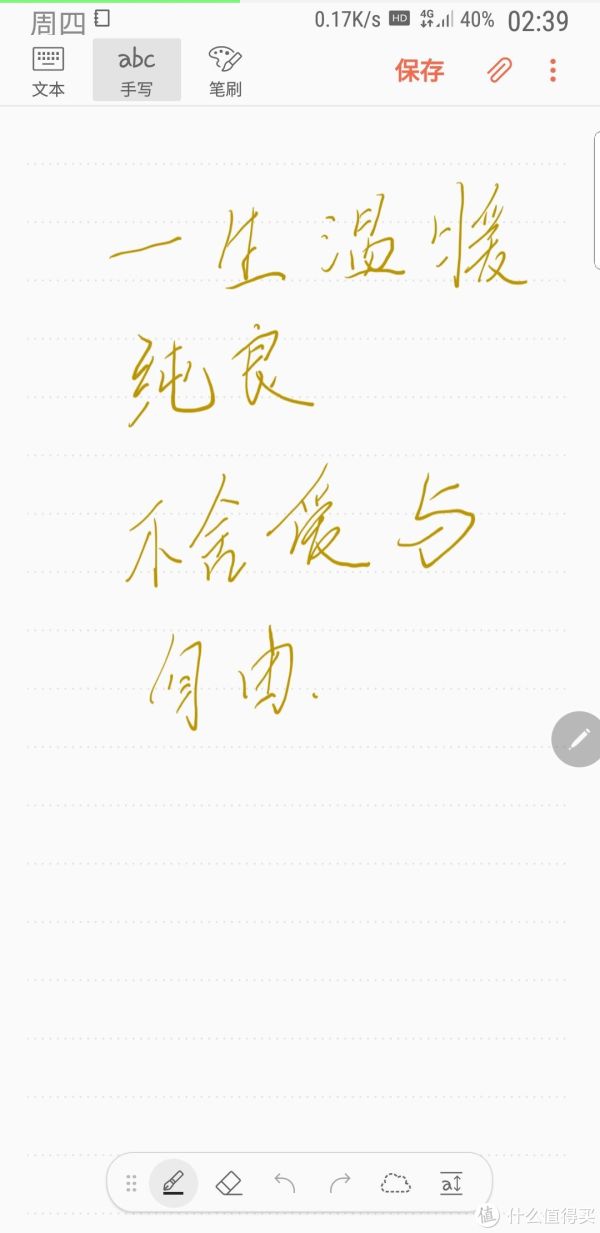 周四 0.17K/s HD 4G 40% 02:39
abc
文本 手写 笔刷 保存
一生温暖
纯良
不舍爱与
自由.
a
值 什么值得买